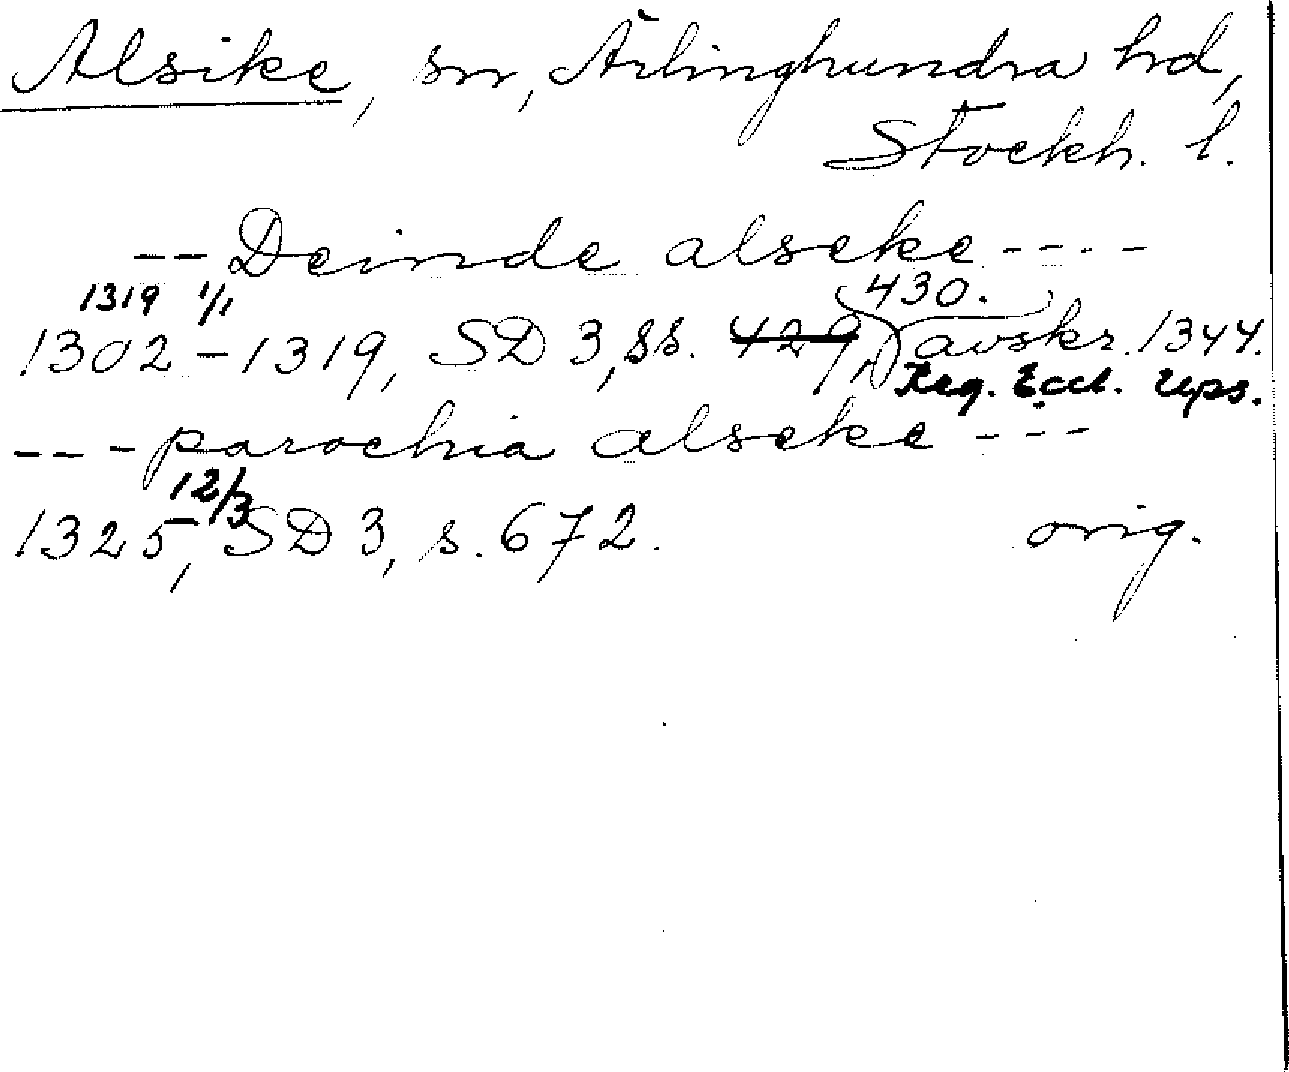 Alsike, sn, Ärlinghundra hd,
Stockh. l.
-- Deinde alseke ----
1319 1/1
430.
1302-1319, SD 3, ss. 429, avskr. 1344.
Reg. Eccl. Ups.
--- parochia alseke ---
12/3
1325, SD 3, s. 672. orig.